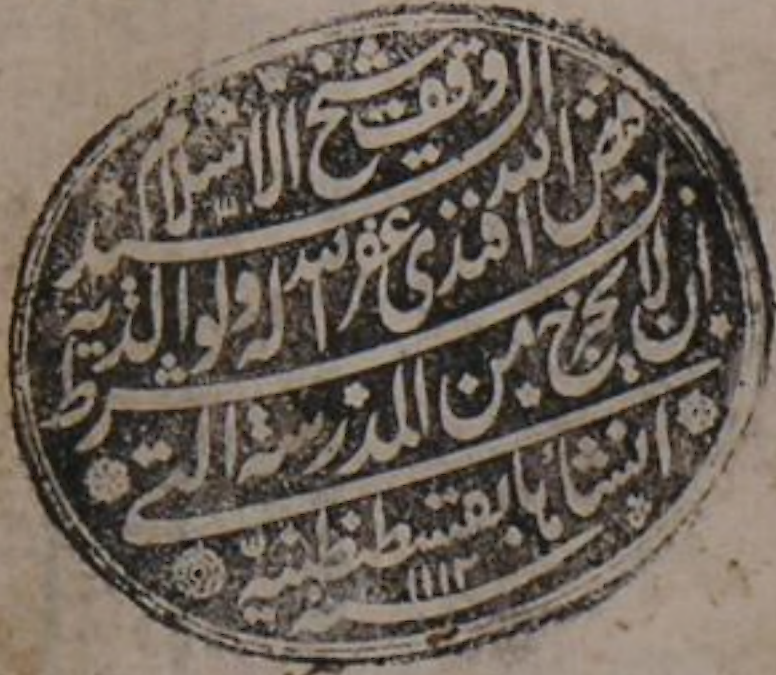 وقف شيخ الاسلام السيد
فيض الله افندى غفر الله له ولوالديه بشرط
ان لا يخرج من المدرسة التى
انشائها بقسطنطنيه
سنه ١١١٢